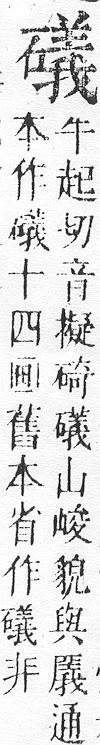 礒
牛起切音擬碕礒山峻貌與㕒通
本作礒十四畫舊本省作礒非